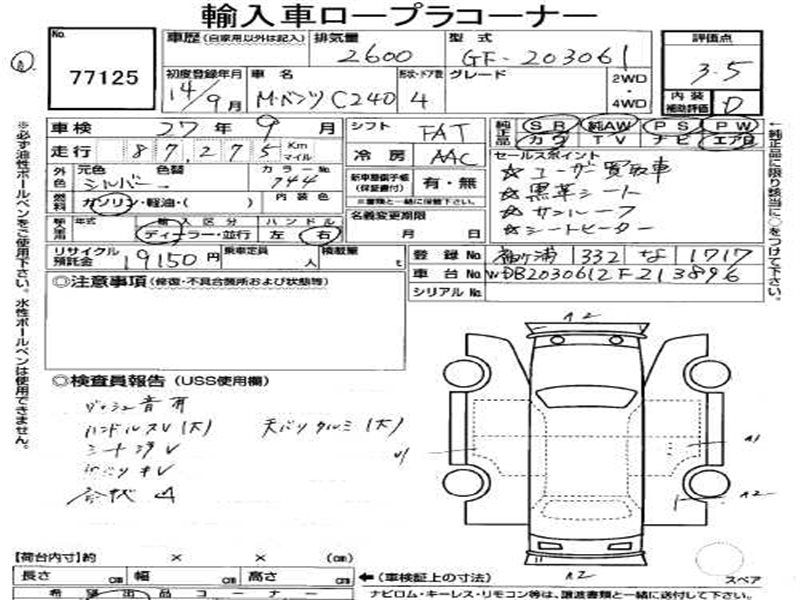 輸入車ロープラコーナー
No.
77125
車歴 (自家用以外は記入)
排気量
2600
型式
GF-203061
評価点
3.5
初度登録年月
14/9月
車名
M・ベンツ C240
形状・ドア数
4
グレード
2WD
・
4WD
内装
補助評価
D
車検 27年 9月
シフト
FAT
純正品
SR 純AW PS PW
カワ TV ナビ エアB
走行 87,275 Km
マイル
冷房
AAC
セールスポイント
☆ユーザー買取車
☆黒革シート
☆サンルーフ
☆シートヒーター
外色
元色
シルバー
色替
カラーNo
744
新車整備手帳
(保証書付)
有・無
※書類と一緒に保管下さい。
燃料
ガソリン・軽油・( )
内装色
名義変更期限
月 日
年式
輸入区分
ディーラー・並行
ハンドル
左 右
リサイクル
預託金
19150円
乗車定員
人
積載量
t
登録No
袖ヶ浦 332 な 1717
車台No
WDB2030612F213896
シリアルNo
◎注意事項 (修復・不具合箇所および状態等)
◎検査員報告 (USS使用欄)
ハンドルスレ(大)
天バリクルミ(大)
A2
A1
A2
A2
スペア
【荷台内寸】約 × × (cm)
長さ cm 幅 cm 高さ cm
←(車検証上の寸法)
希望出品コーナー
ナビロム・キーレス・リモコン等は、譲渡書類と一緒に送付して下さい。
※必ず油性ボールペンをご使用下さい。水性ボールペンは使用できません。
←純正品に限り該当に○をつけて下さい。